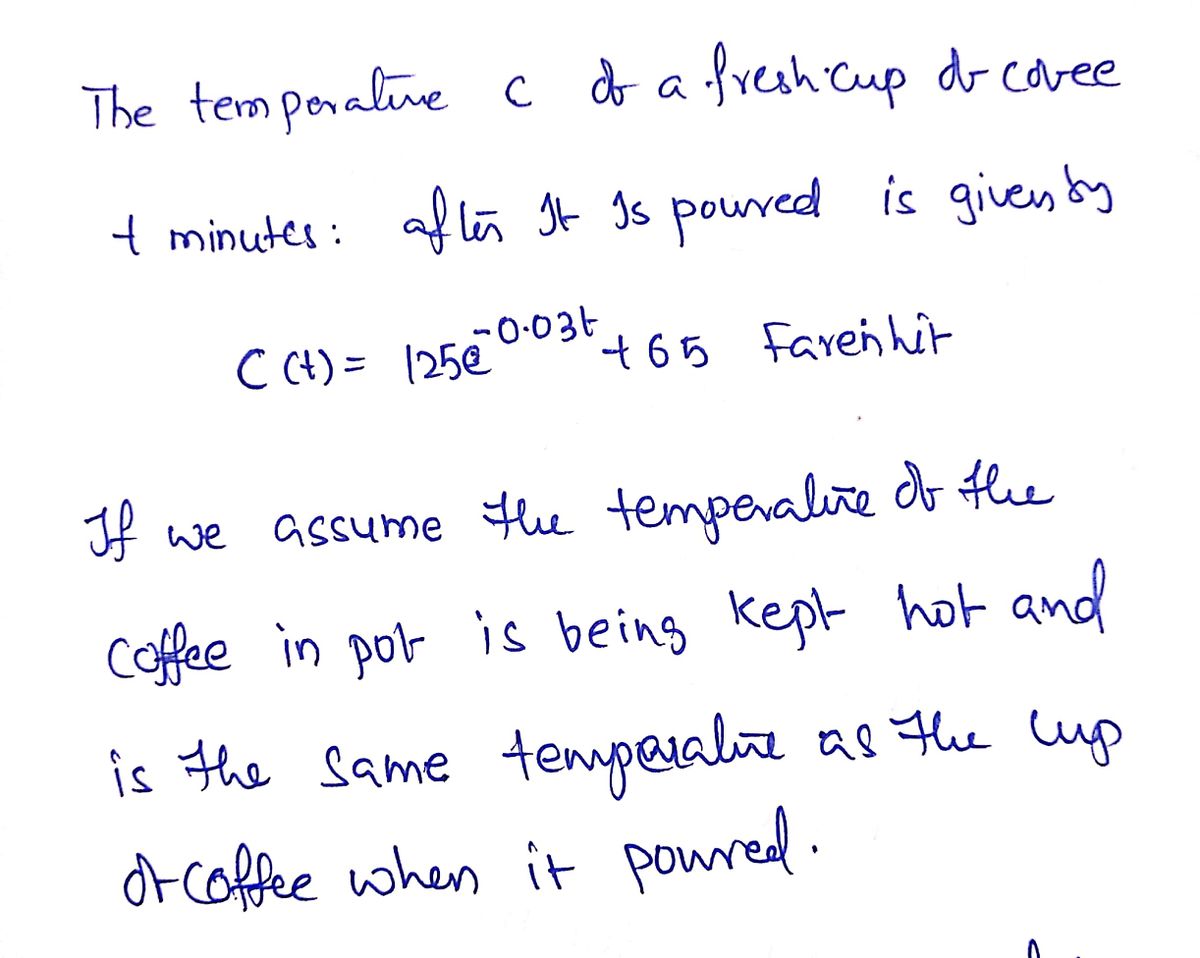 The temperature C of a fresh cup of covee
t minutes: after It Is pourred is given by
C(t) = 125e^-0.03t + 65 Farenhit
If we assume the temperature of the
coffee in pot is being kept hot and
is the same temperature as the cup
of coffee when it pourred.